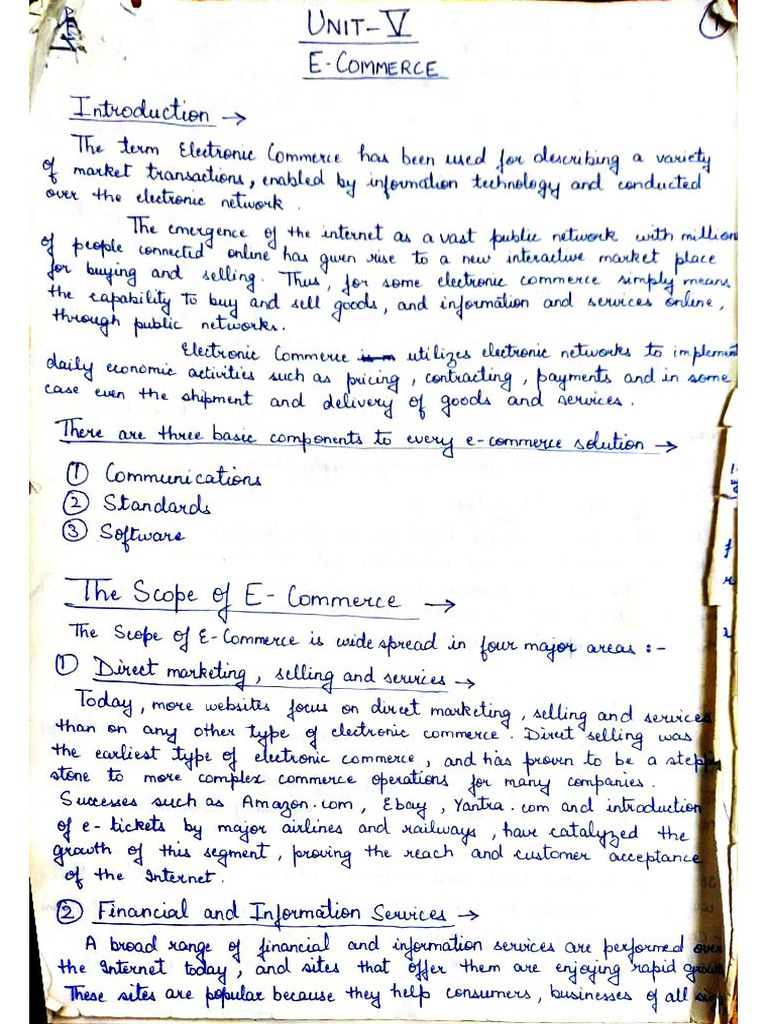 UNIT-V
1
E-COMMERCE
Introduction →
The term Electronic Commerce has been used for describing a variety
of market transactions, enabled by information technology and conducted
over the electronic network.
The emergence of the internet as a vast public network with million
of people connected online has given rise to a new interactive market place
for buying and selling. Thus, for some electronic commerce simply means
the capability to buy and sell goods, and information and services online,
through public networks.
Electronic Commerce utilizes electronic networks to implement
daily economic activities such as pricing, contracting, payments and in some
case even the shipment and delivery of goods and services.
There are three basic components to every e-commerce solution →
① Communications
② Standards
③ Software
The Scope of E-Commerce →
The Scope of E-Commerce is wide spread in four major areas :-
① Direct marketing, selling and services →
Today, more websites focus on direct marketing, selling and services
than on any other type of electronic commerce. Direct selling was
the earliest type of electronic commerce, and has proven to be a stepp
stone to more complex commerce operations for many companies.
Successes such as Amazon.com, Ebay, Yantra.com and introduction
of e-tickets by major airlines and railways, have catalyzed the
growth of this segment, proving the reach and customer acceptance
of the Internet.
② Financial and Information Services →
A broad range of financial and information services are performed over
the Internet today, and sites that offer them are enjoying rapid growth
These sites are popular because they help consumers, businesses of all